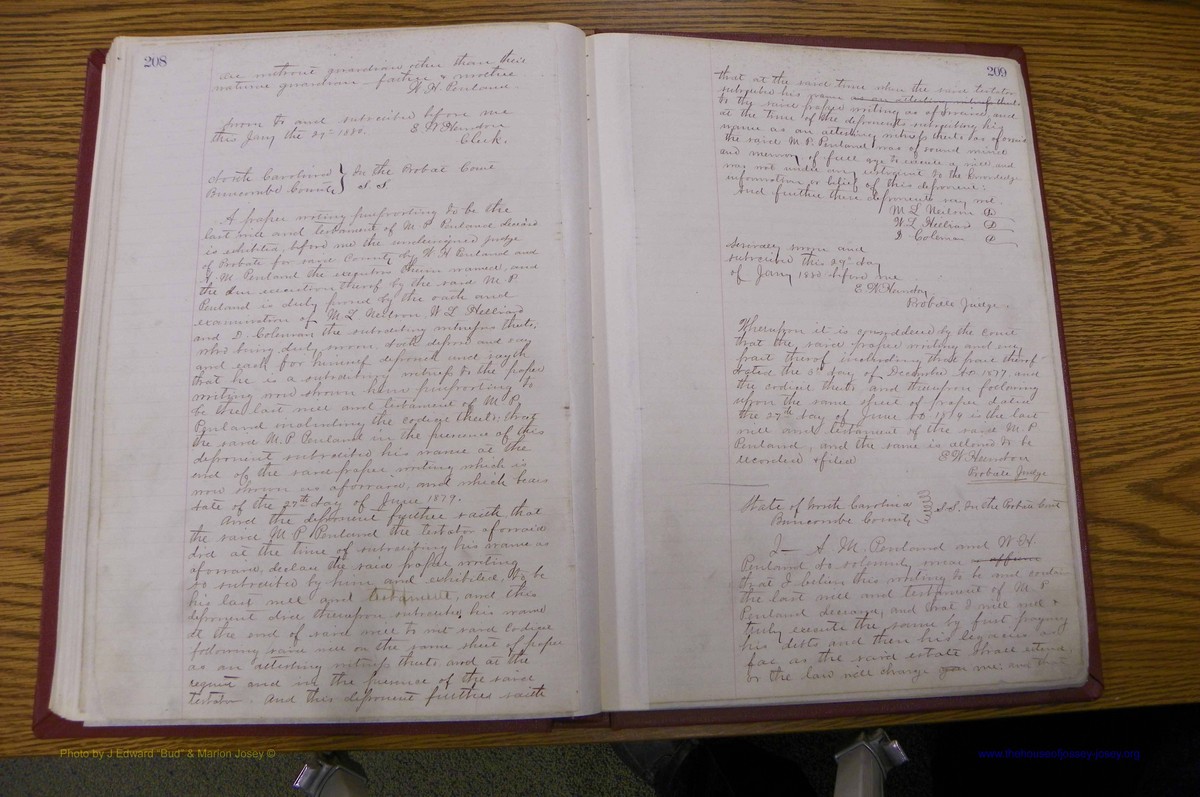 208
are without guardian other than their
natural guardian father & mother
W. H. Penland.
Sworn to and subscribed before me
this Jany the 29th 1880.
E W Herndon
Clerk.
North Carolina } In the Probat Court
Buncombe County } S S
A paper writing purporting to be the
last will and testament of M. P. Penland deceased
is exhibited before me the undersigned Judge
of Probate for said County by W H Penland and
A. M. Penland the executors therein named, and
the due execution thereof by the said M. P.
Penland is duly proved by the oath and
examination of M. L. Neilson W L Hilliard
and D. Coleman the subscribing witnesses thereto,
who being duly sworn doth depose and say
and each for himself deposeth and sayth
that he is a subscribing witness to the paper
writing now shown him purporting to
be the last will and testament of M. P.
Penland including the codicil thereto; that
the said M. P. Penland in the presence of this
deponent subscribed his name at the
end of the said paper writing which is
now shown as aforesaid, and which bears
date of the 27th day of June 1879.
And the deponent further saith that
the said M. P. Penland the testator aforesaid
did at the time of subscribing his name as
aforesaid, declare the said paper writing
so subscribed by him and exhibited to be
his last will and testament, and this
deponent did thereupon subscribe his name
at the end of said will to wit said Codicil
following said will on the same sheet of paper
as an attesting witness thereto and at the
request and in the presence of the said
testator. And this deponent further saith
209
that at the said time when the said testator
subscribed his name as an attesting witness thereto
to the said paper writing as aforesaid, and
at the time of the deponents subscribing his
name as an attesting witness thereto as aforesaid
the said M. P. Penland was of sound mind
and memory of full age to execute a will and
was not under any restraint to the knowledge
information or belief of this deponent:
And further these deponents say not.
M. L. Neilson
W L Hilliard
D Coleman
Severally sworn and
subscribed this 29th day
of Jany 1880 before me
E W Herndon
Probate Judge.
Whereupon it is considered by the court
that the said paper writing and every
part thereof including that part thereof
dated the day of December AD 1877 and
the codicil thereto and thereupon following
upon the same sheet of paper dated
the 27th day of June AD 1879 is the last
will and testament of the said M. P.
Penland, and the same is allowed to be
recorded & filed
E W Herndon
Probate Judge
State of North Carolina } S.S. In the Probat Court
Buncombe County
I A. M. Penland and W. H.
Penland do solemnly swear
that I believe this writing to be and contain
the last will and testament of M. P.
Penland deceased, and that I will well &
truly execute the same by first paying
his debts and then his legacies as
far as the said estate shall extend
or the law will charge me; and that
Photo by J Edward "Bud" & Marion Josey ©
www.thehouseofjossey-josey.org